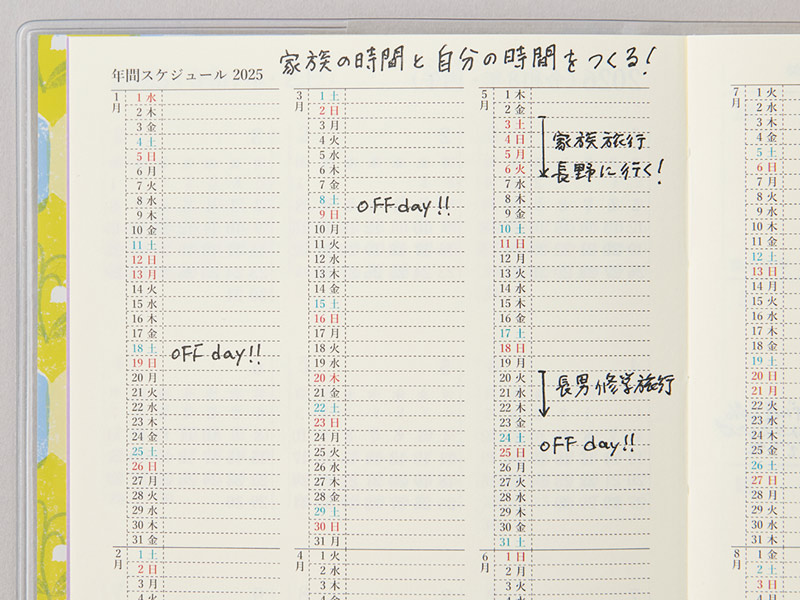 家族の時間と自分の時間をつくる!
年間スケジュール 2025
1月
1 水
2 木
3 金
4 土
5 日
6 月
7 火
8 水
9 木
10 金
11 土
12 日
13 月
14 火
15 水
16 木
17 金
18 土 OFF day!!
19 日
20 月
21 火
22 水
23 木
24 金
25 土
26 日
27 月
28 火
29 水
30 木
31 金
2月
1 土
2 日
3 月
4 火
3月
1 土
2 日
3 月
4 火
5 水
6 木
7 金
8 土 OFF day!!
9 日
10 月
11 火
12 水
13 木
14 金
15 土
16 日
17 月
18 火
19 水
20 木
21 金
22 土
23 日
24 月
25 火
26 水
27 木
28 金
29 土
30 日
31 月
4月
1 火
2 水
3 木
4 金
5月
1 木
2 金
3 土
4 日 家族旅行
5 月
6 火 長野に行く!
7 水
8 木
9 金
10 土
11 日
12 月
13 火
14 水
15 木
16 金
17 土
18 日
19 月
20 火 長男修学旅行
21 水
22 木
23 金
24 土 OFF day!!
25 日
26 月
27 火
28 水
29 木
30 金
31 土
6月
1 日
2 月
3 火
7月
1 火
2 水
3 木
4 金
5 土
6 日
7 月
8 火
9 水
10 木
11 金
12 土
13 日
14 月
15 火
16 水
17 木
18 金
19 土
20 日
21 月
22 火
23 水
24 木
25 金
26 土
27 日
28 月
29 火
30 水
31 木
8月
1 金
2 土
3 日
4 月